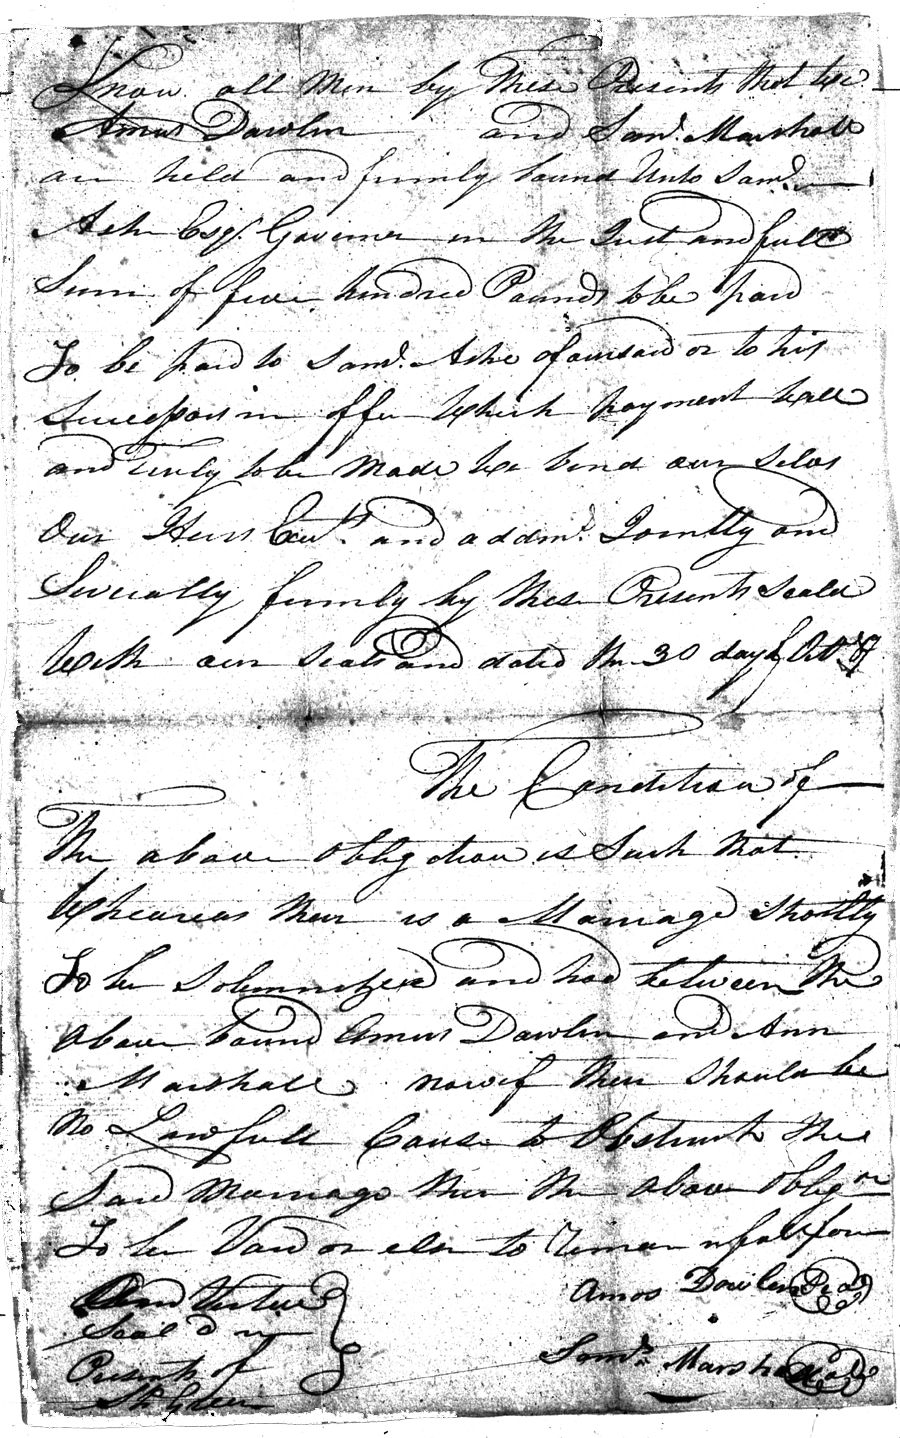 Know all Men by These Presents that We
Amus Dawlin and Saml. Marshall
are held and firmly bound Unto Saml.
Ashe Esqr. Govirner in the Just and full
Sum of five hundred Pounds to be paid
To be paid to Saml. Ashe afoursaid or to his
Sucessors in offis Which payment Well
and Truly to be Made We bend our Selvs
Our Heirs Exut. and addmr. Jointly and
Severally firmly by these Presents Sealed
With our Seals and dated the 30 day of Octr.
The Condition of
The above obligation is Such that
Wheareas their is a Marriage Shortly
To be Solemnized and had between the
above bound Amus Dawlin and Ann
Marshall now if their should be
No Lawfull Cause to Obstruct the
Said Marriage then the above oblign
To be Void or else to Remain in full force
And Vertue
Seal'd in
Presents of
St. Green
Amos Dowlen Seal
Saml. Marshall Seal